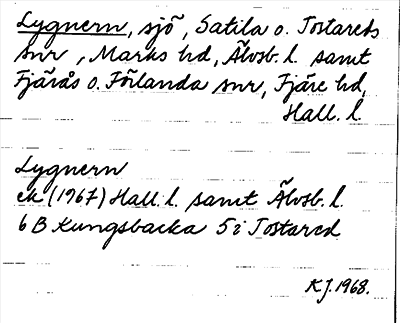 Lygnern, sjö, Sätila o. Tostareds
snr, Marks hd, Älvsb. l. samt
Fjärås o. Förlanda snr, Fjäre hd,
Hall. l.
Lygnern
ek (1967) Hall. l. samt Älvsb. l.
6 B Kungsbacka 5 i Tostared
KJ. 1968.